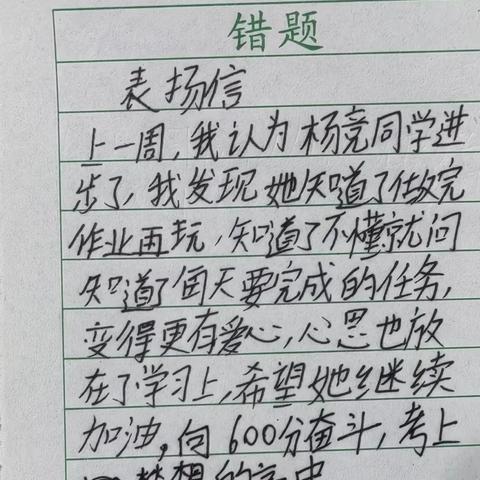 错题
表扬信
上一周,我认为杨竞同学进
步了,我发现她知道了做完
作业再玩,知道了不懂就问
知道了每天要完成的任务,
变得更有爱心,心思也放
在了学习上,希望她继续
加油,向600分奋斗,考上
梦想的高中